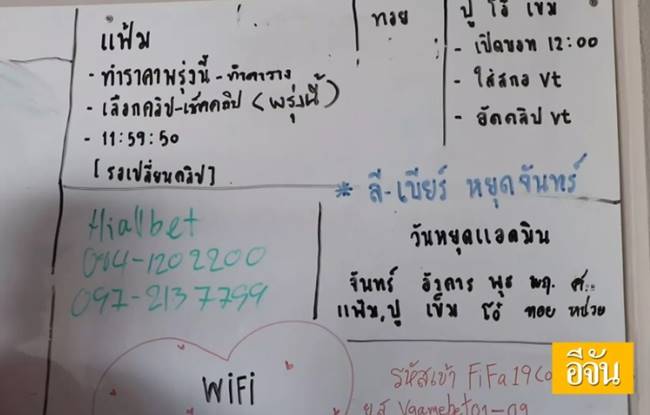 แฟ้ม
- ทำราคาพรุ่งนี้ - ทำตาราง
- เลือกคลิป-เช็คคลิป (พรุ่งนี้)
- 11:59:50
[รอเปลี่ยนคลิป]
ทอย
ปู โอ๋ เข็ม
- เปิดบอท 12:00
- ใส่สกอ Vt
- อัดคลิป Vt
* ลี-เบียร์ หยุดจันทร์
Hiallbet
094-1202200
097-2137799
วันหยุดแอดมิน
จันทร์ อังคาร พุธ พฤ. ศ.
แฟ้ม,ปู เข็ม โอ๋ ทอย หน่วย
WiFi
รหัสเข้า FiFa19
อีจัน